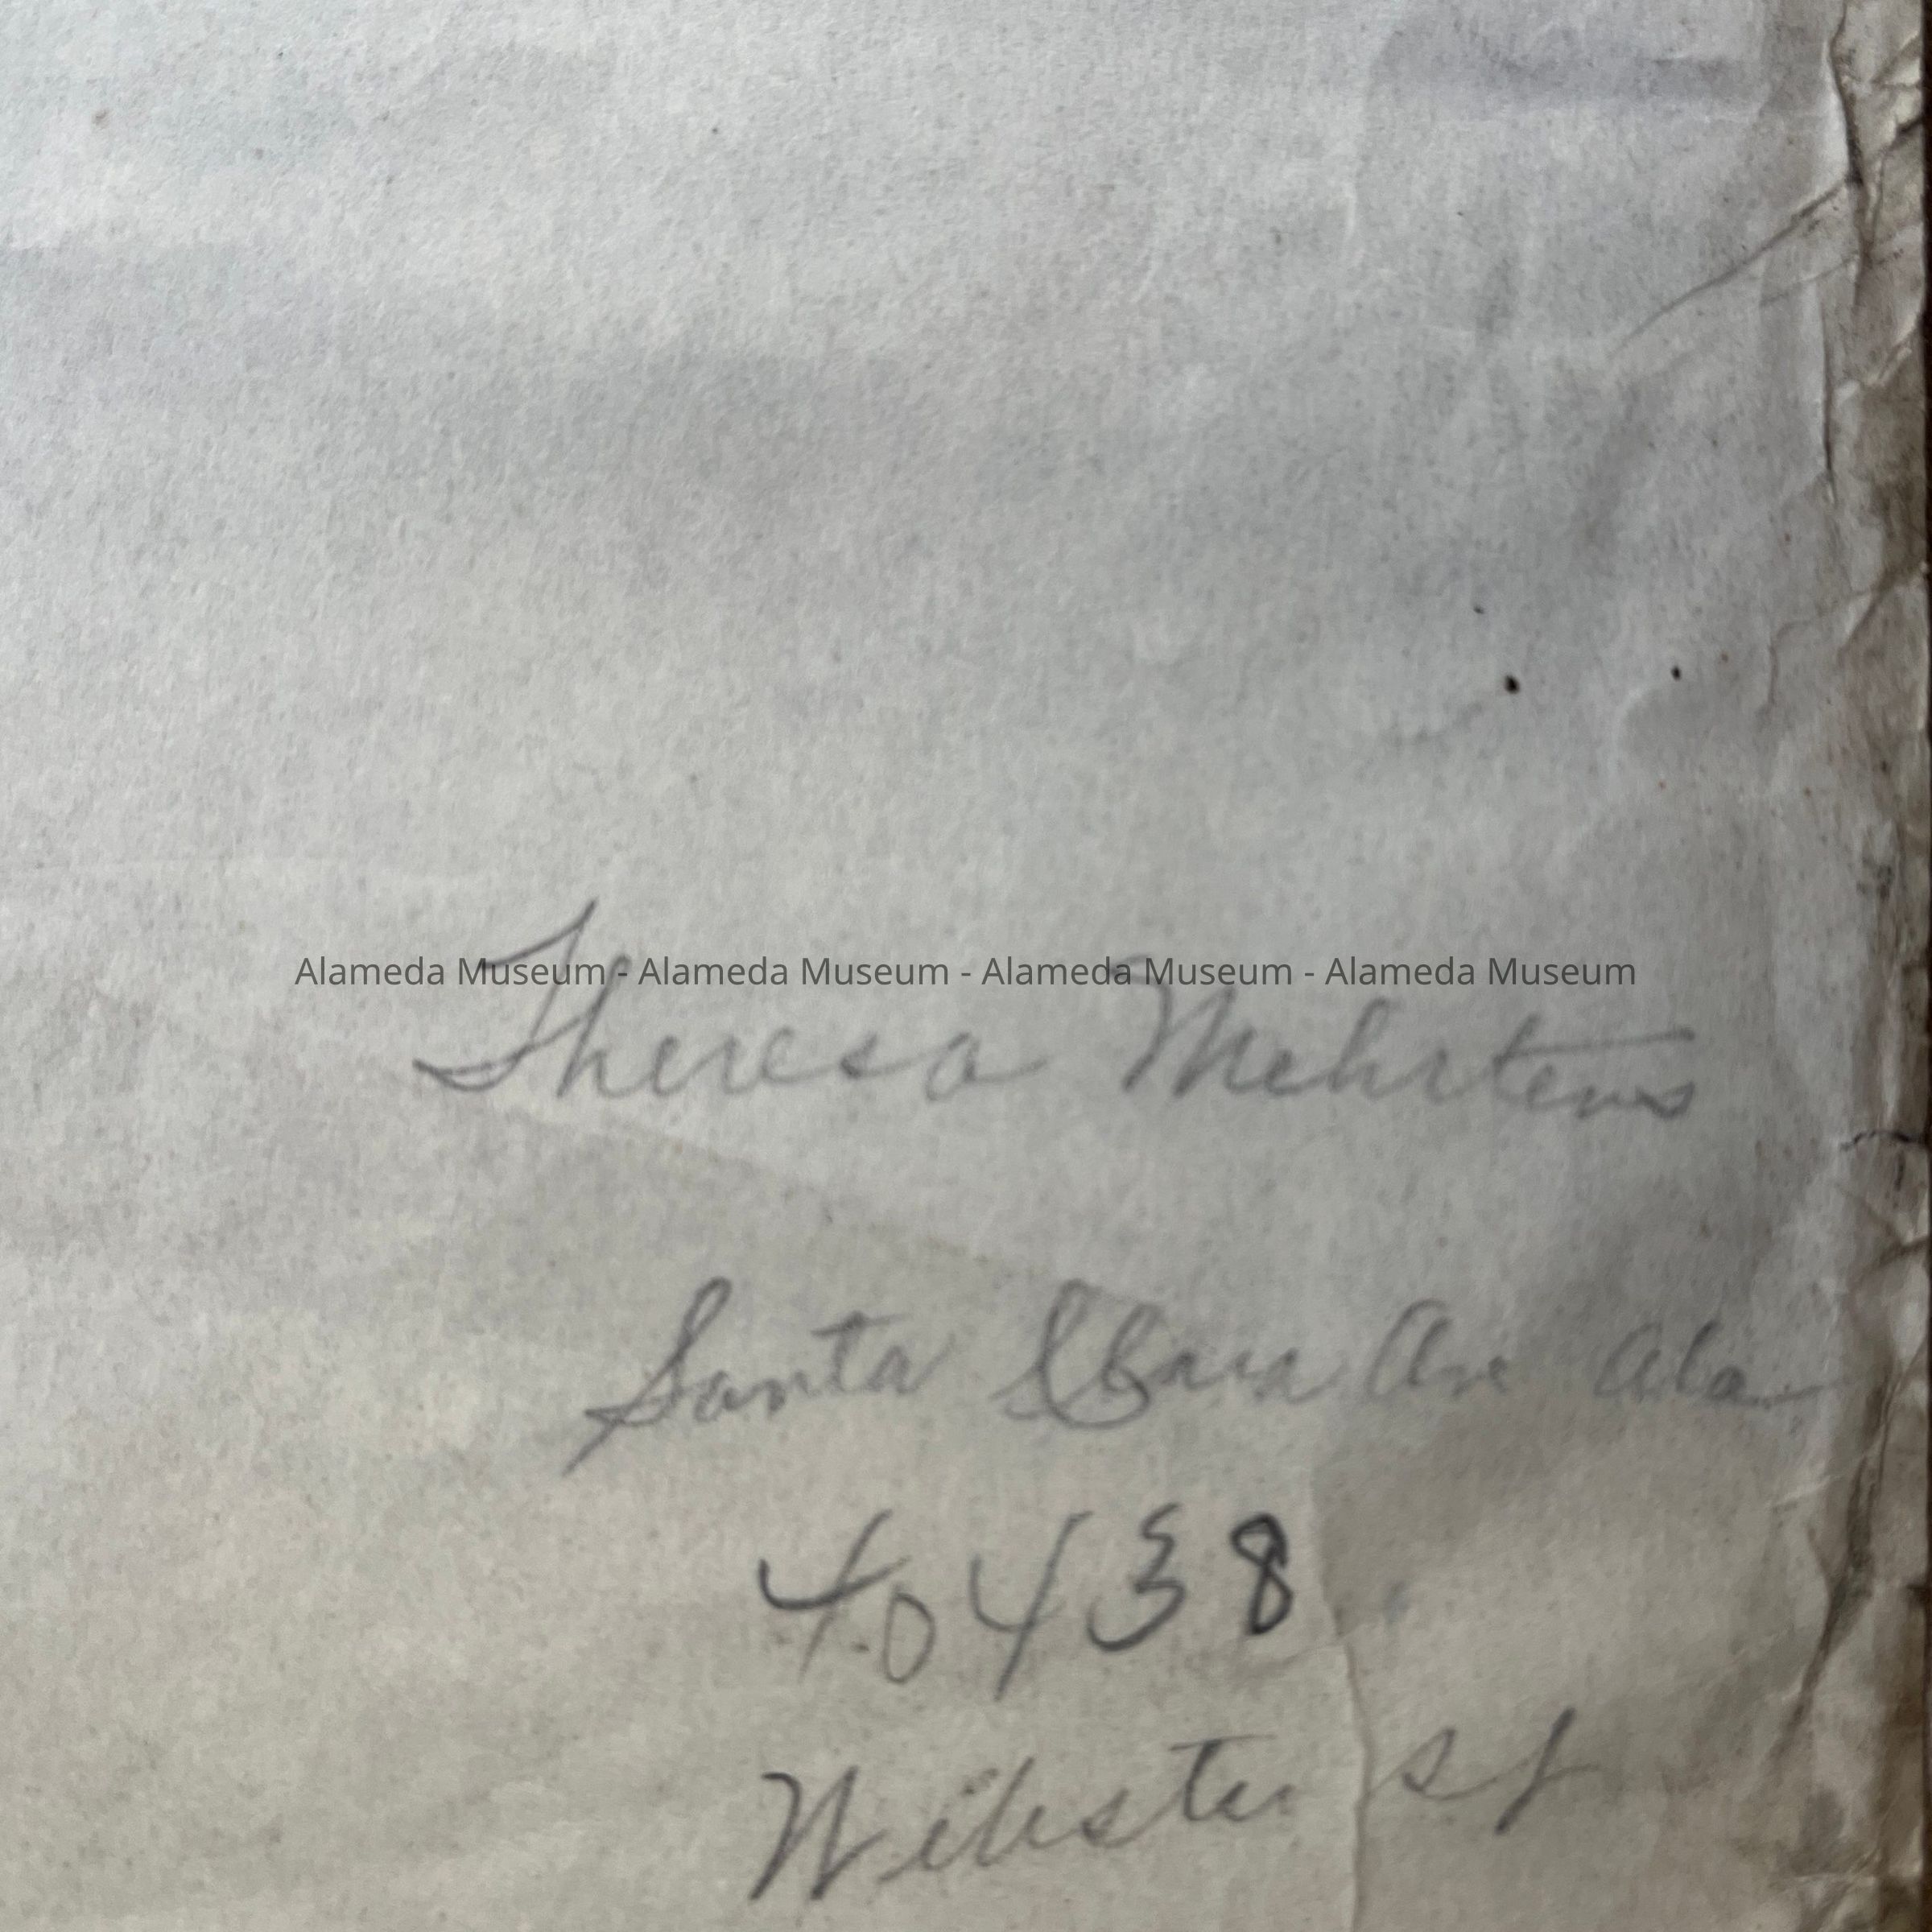 Alameda Museum - Alameda Museum - Alameda Museum - Alameda Museum
Theresa Mehrtens
Santa Clara Ave Ala
40438
Webster St